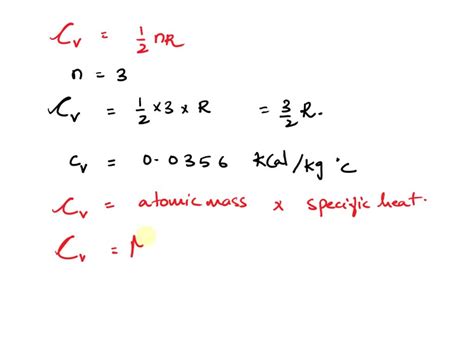 C_v = 1/2 nR
n = 3
C_v = 1/2 × 3 × R = 3/2 R.
c_v = 0.0356 kcal/kg °c
C_v = atomic mass x specific heat.
C_v = M